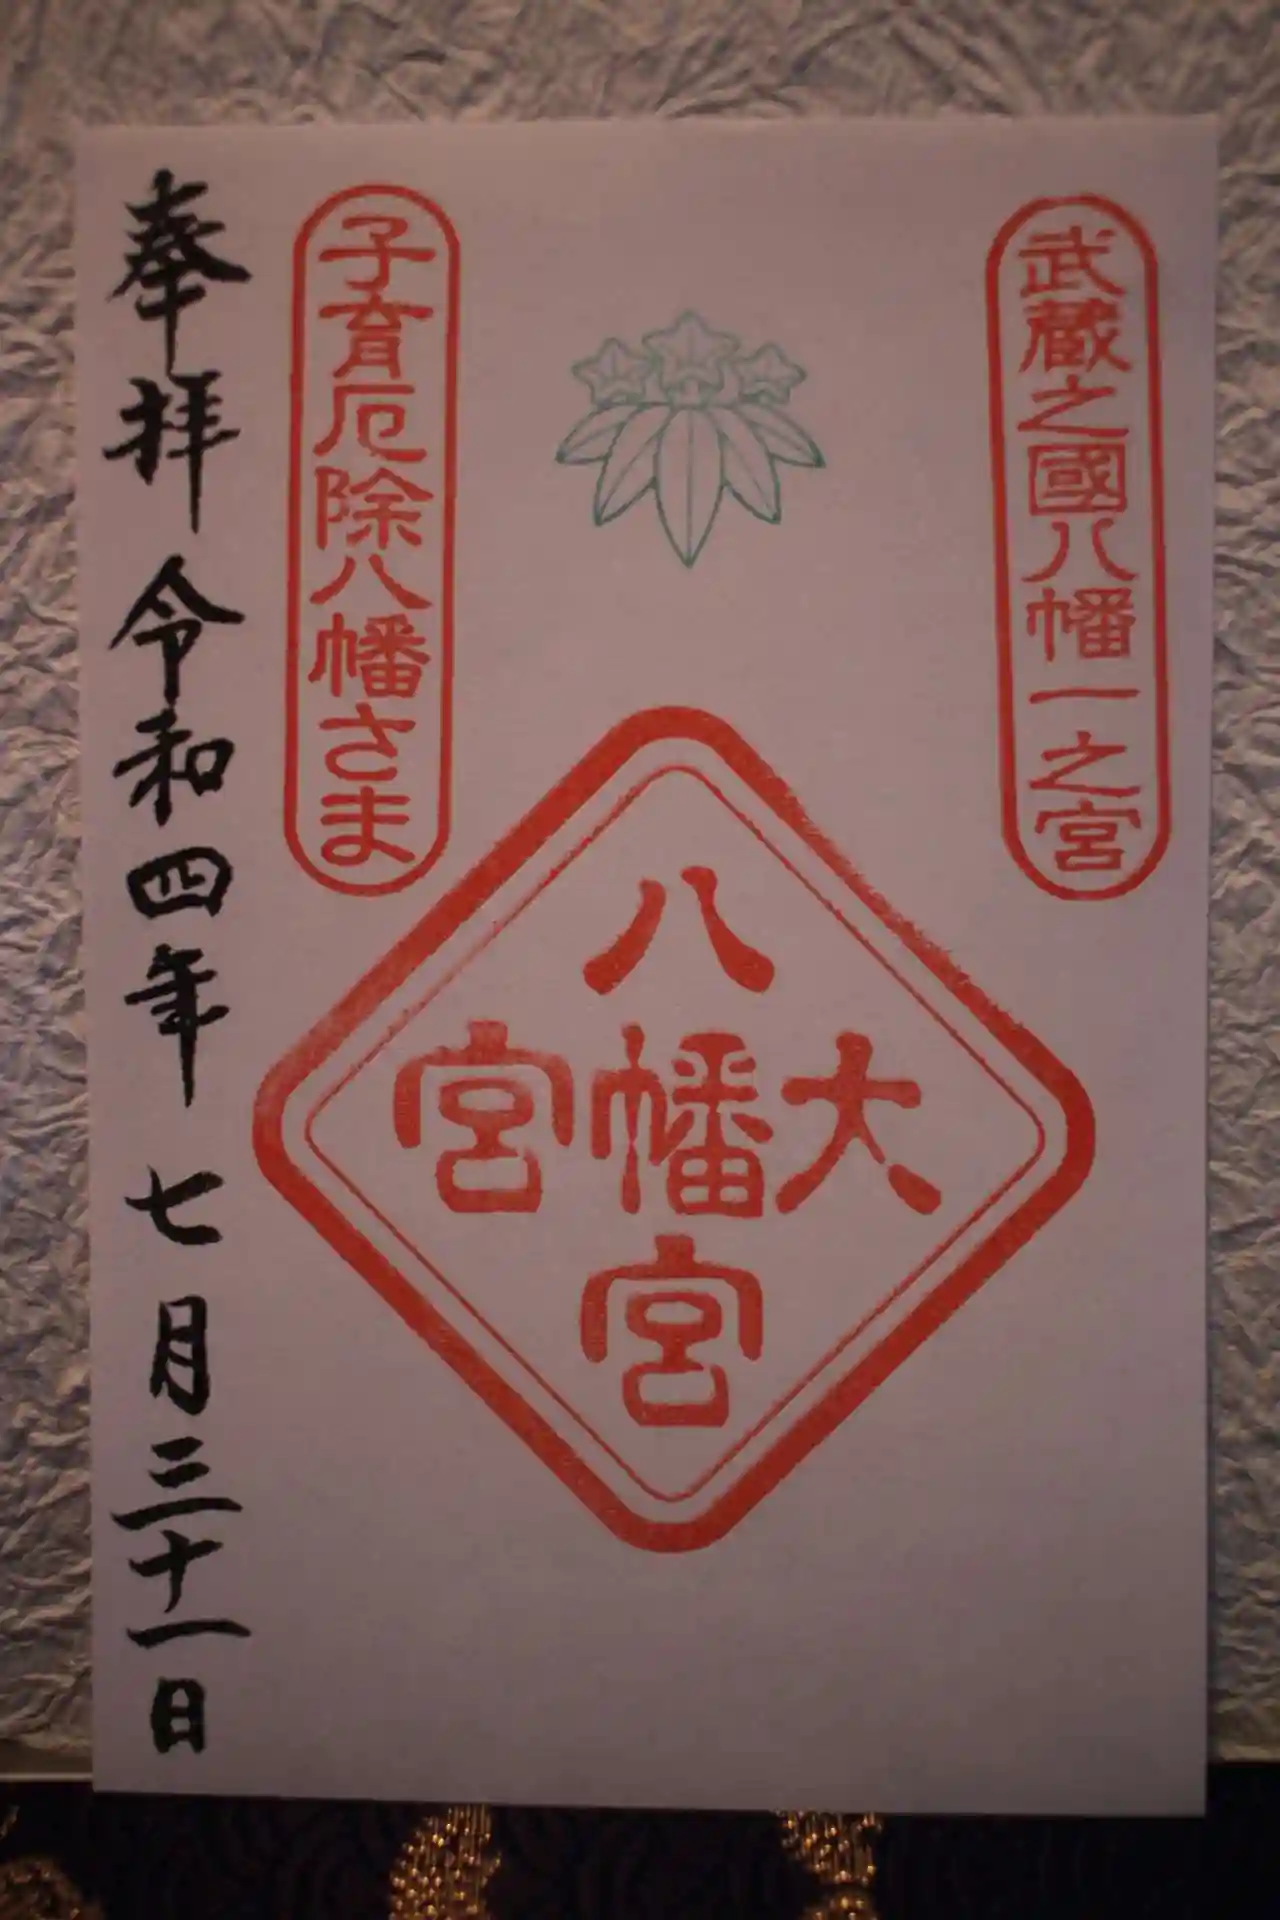 武蔵之國八幡一之宮
八幡宮
大
宮
子育厄除八幡さま
奉拝 令和四年 七月三十一日